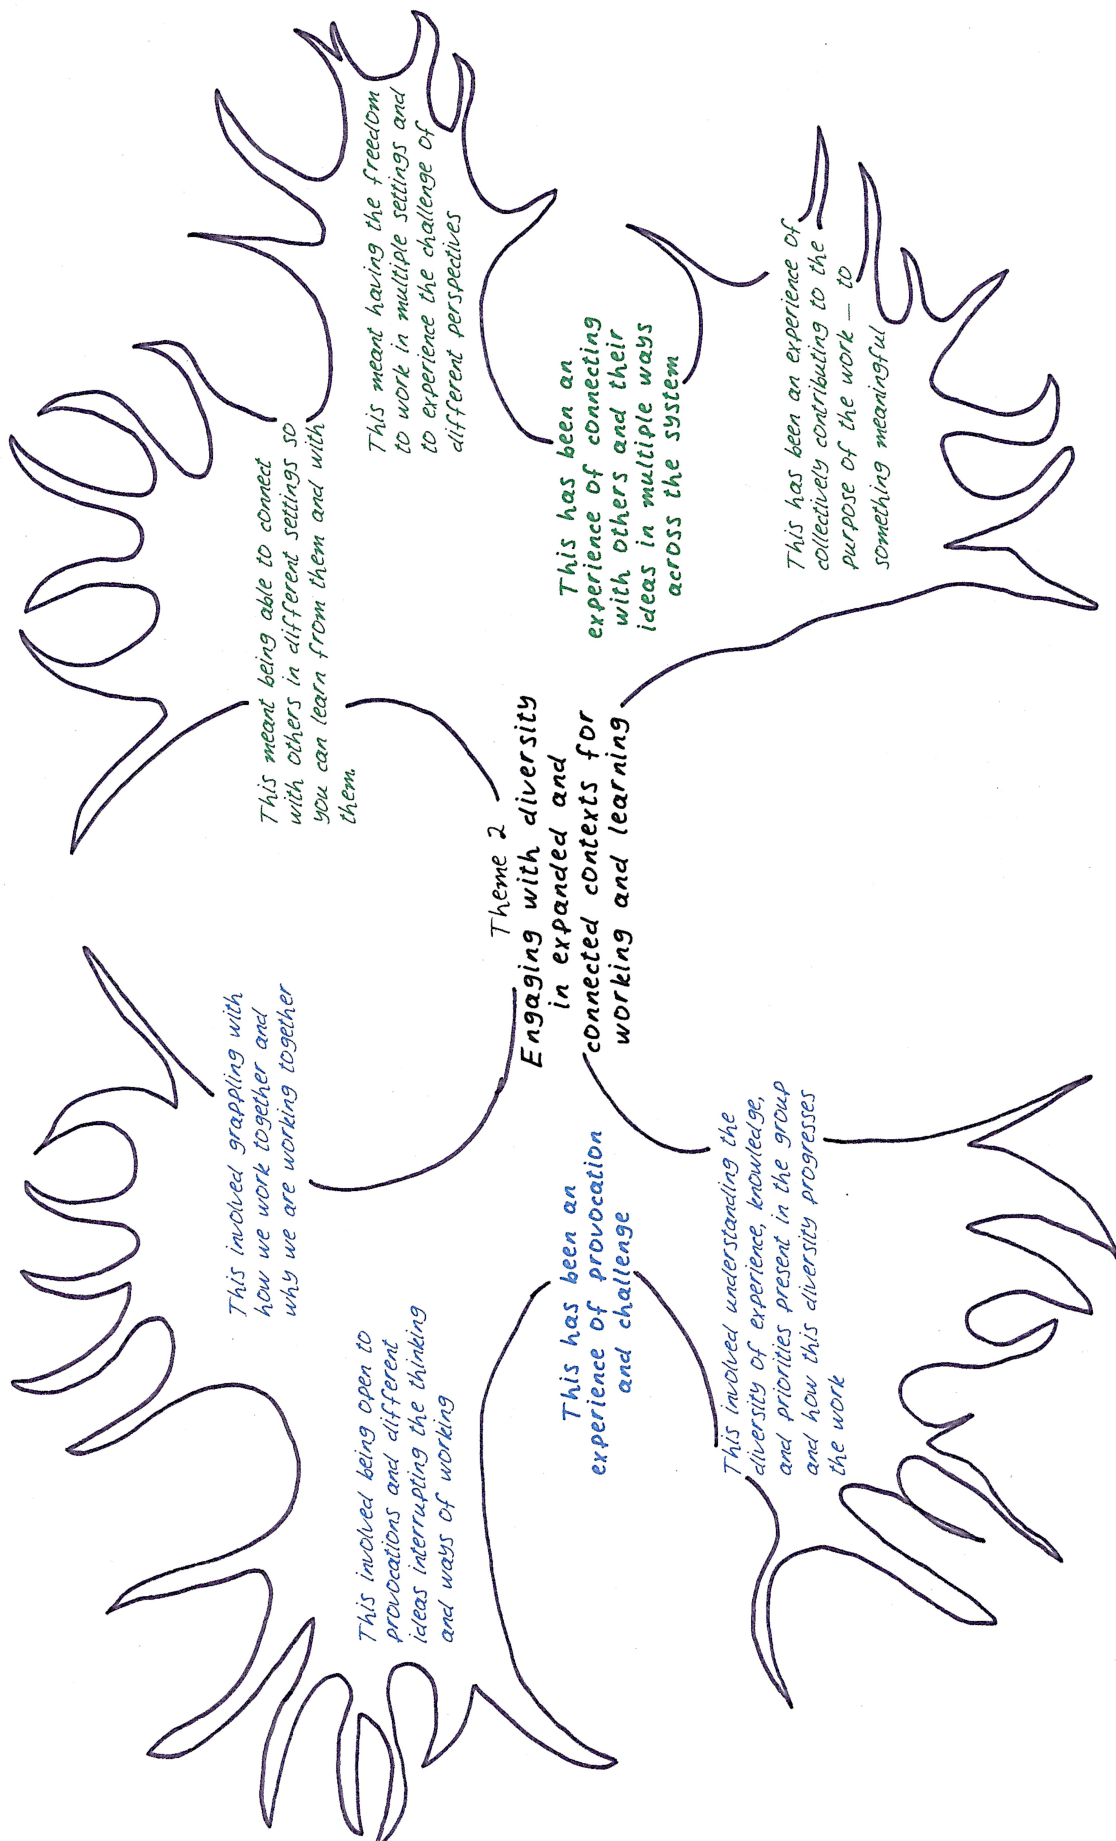 Theme 2
Engaging with diversity
in expanded and
connected contexts for
working and learning
This has been an
experience of provocation
and challenge
This involved being open to
provocations and different
ideas interrupting the thinking
and ways of working
This involved grappling with
how we work together and
why we are working together
This involved understanding the
diversity of experience, knowledge,
and priorities present in the group
and how this diversity progresses
the work
This has been an
experience of connecting
with others and their
ideas in multiple ways
across the system
This meant being able to connect
with others in different settings so
you can learn from them and with
them.
This meant having the freedom
to work in multiple settings and
to experience the challenge of
different perspectives
This has been an experience of
collectively contributing to the
purpose of the work – to
something meaningful